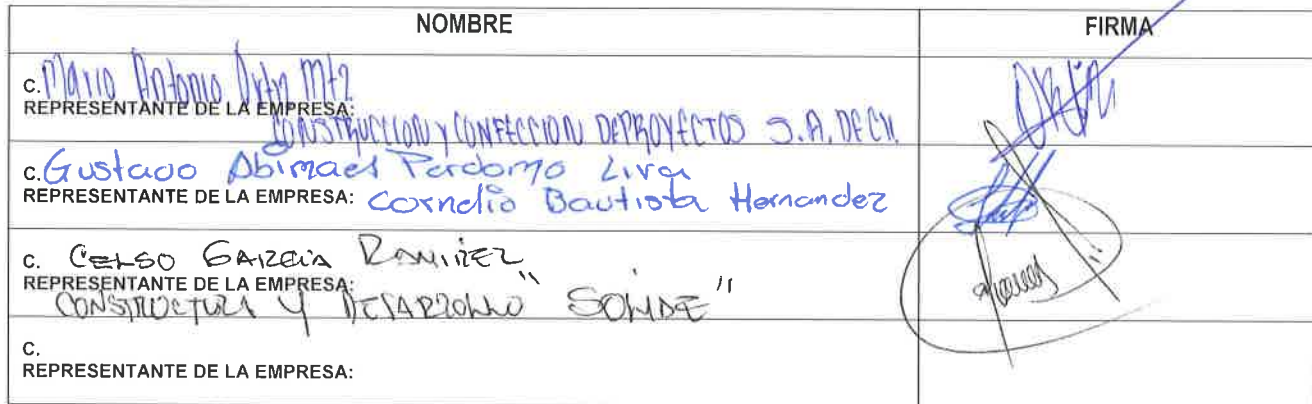 NOMBRE
FIRMA
C. Mario Antonio Mtz
REPRESENTANTE DE LA EMPRESA:
CONSTRUCCION Y CONFECCION DE PROYECTOS S.A. DE C.V.
C. Gustavo Abimael Perdomo Liva
REPRESENTANTE DE LA EMPRESA: Cornelio Bautista Hernandez
C. CELSO GARCIA RAMIREZ
REPRESENTANTE DE LA EMPRESA:
CONSTRUCTORA Y DESARROLLO "
C.
REPRESENTANTE DE LA EMPRESA: